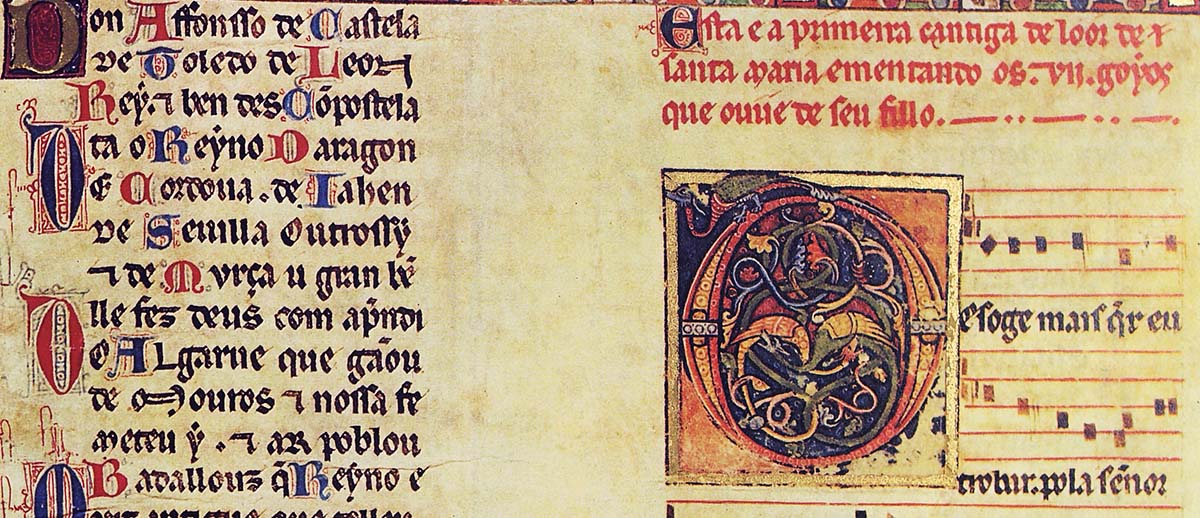 Don Affonsso de Castela
De Toledo de Leon
Rey. ⁊ ben des Cõpostela
Ta o Reyno Daragon
De Cordoua. de Iahen
De Seuilla Outrossy
⁊ de Murça u gran bẽ
lle fez deus com apndi
O Algarue que gãou
de Mouros ⁊ nossa fe
meteu y. ⁊ ar poblou
Badallouz q̃ Reyno e
Esta e a primeira cantiga de loor de
santa maria ementando os. vii. goyos
que ouue de seu fillo.
Des oge mais q̃r eu
trobar. pola señor